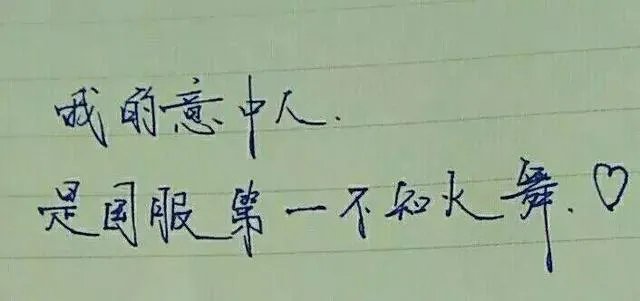 我的意中人.
是国服第一不知火舞.♡